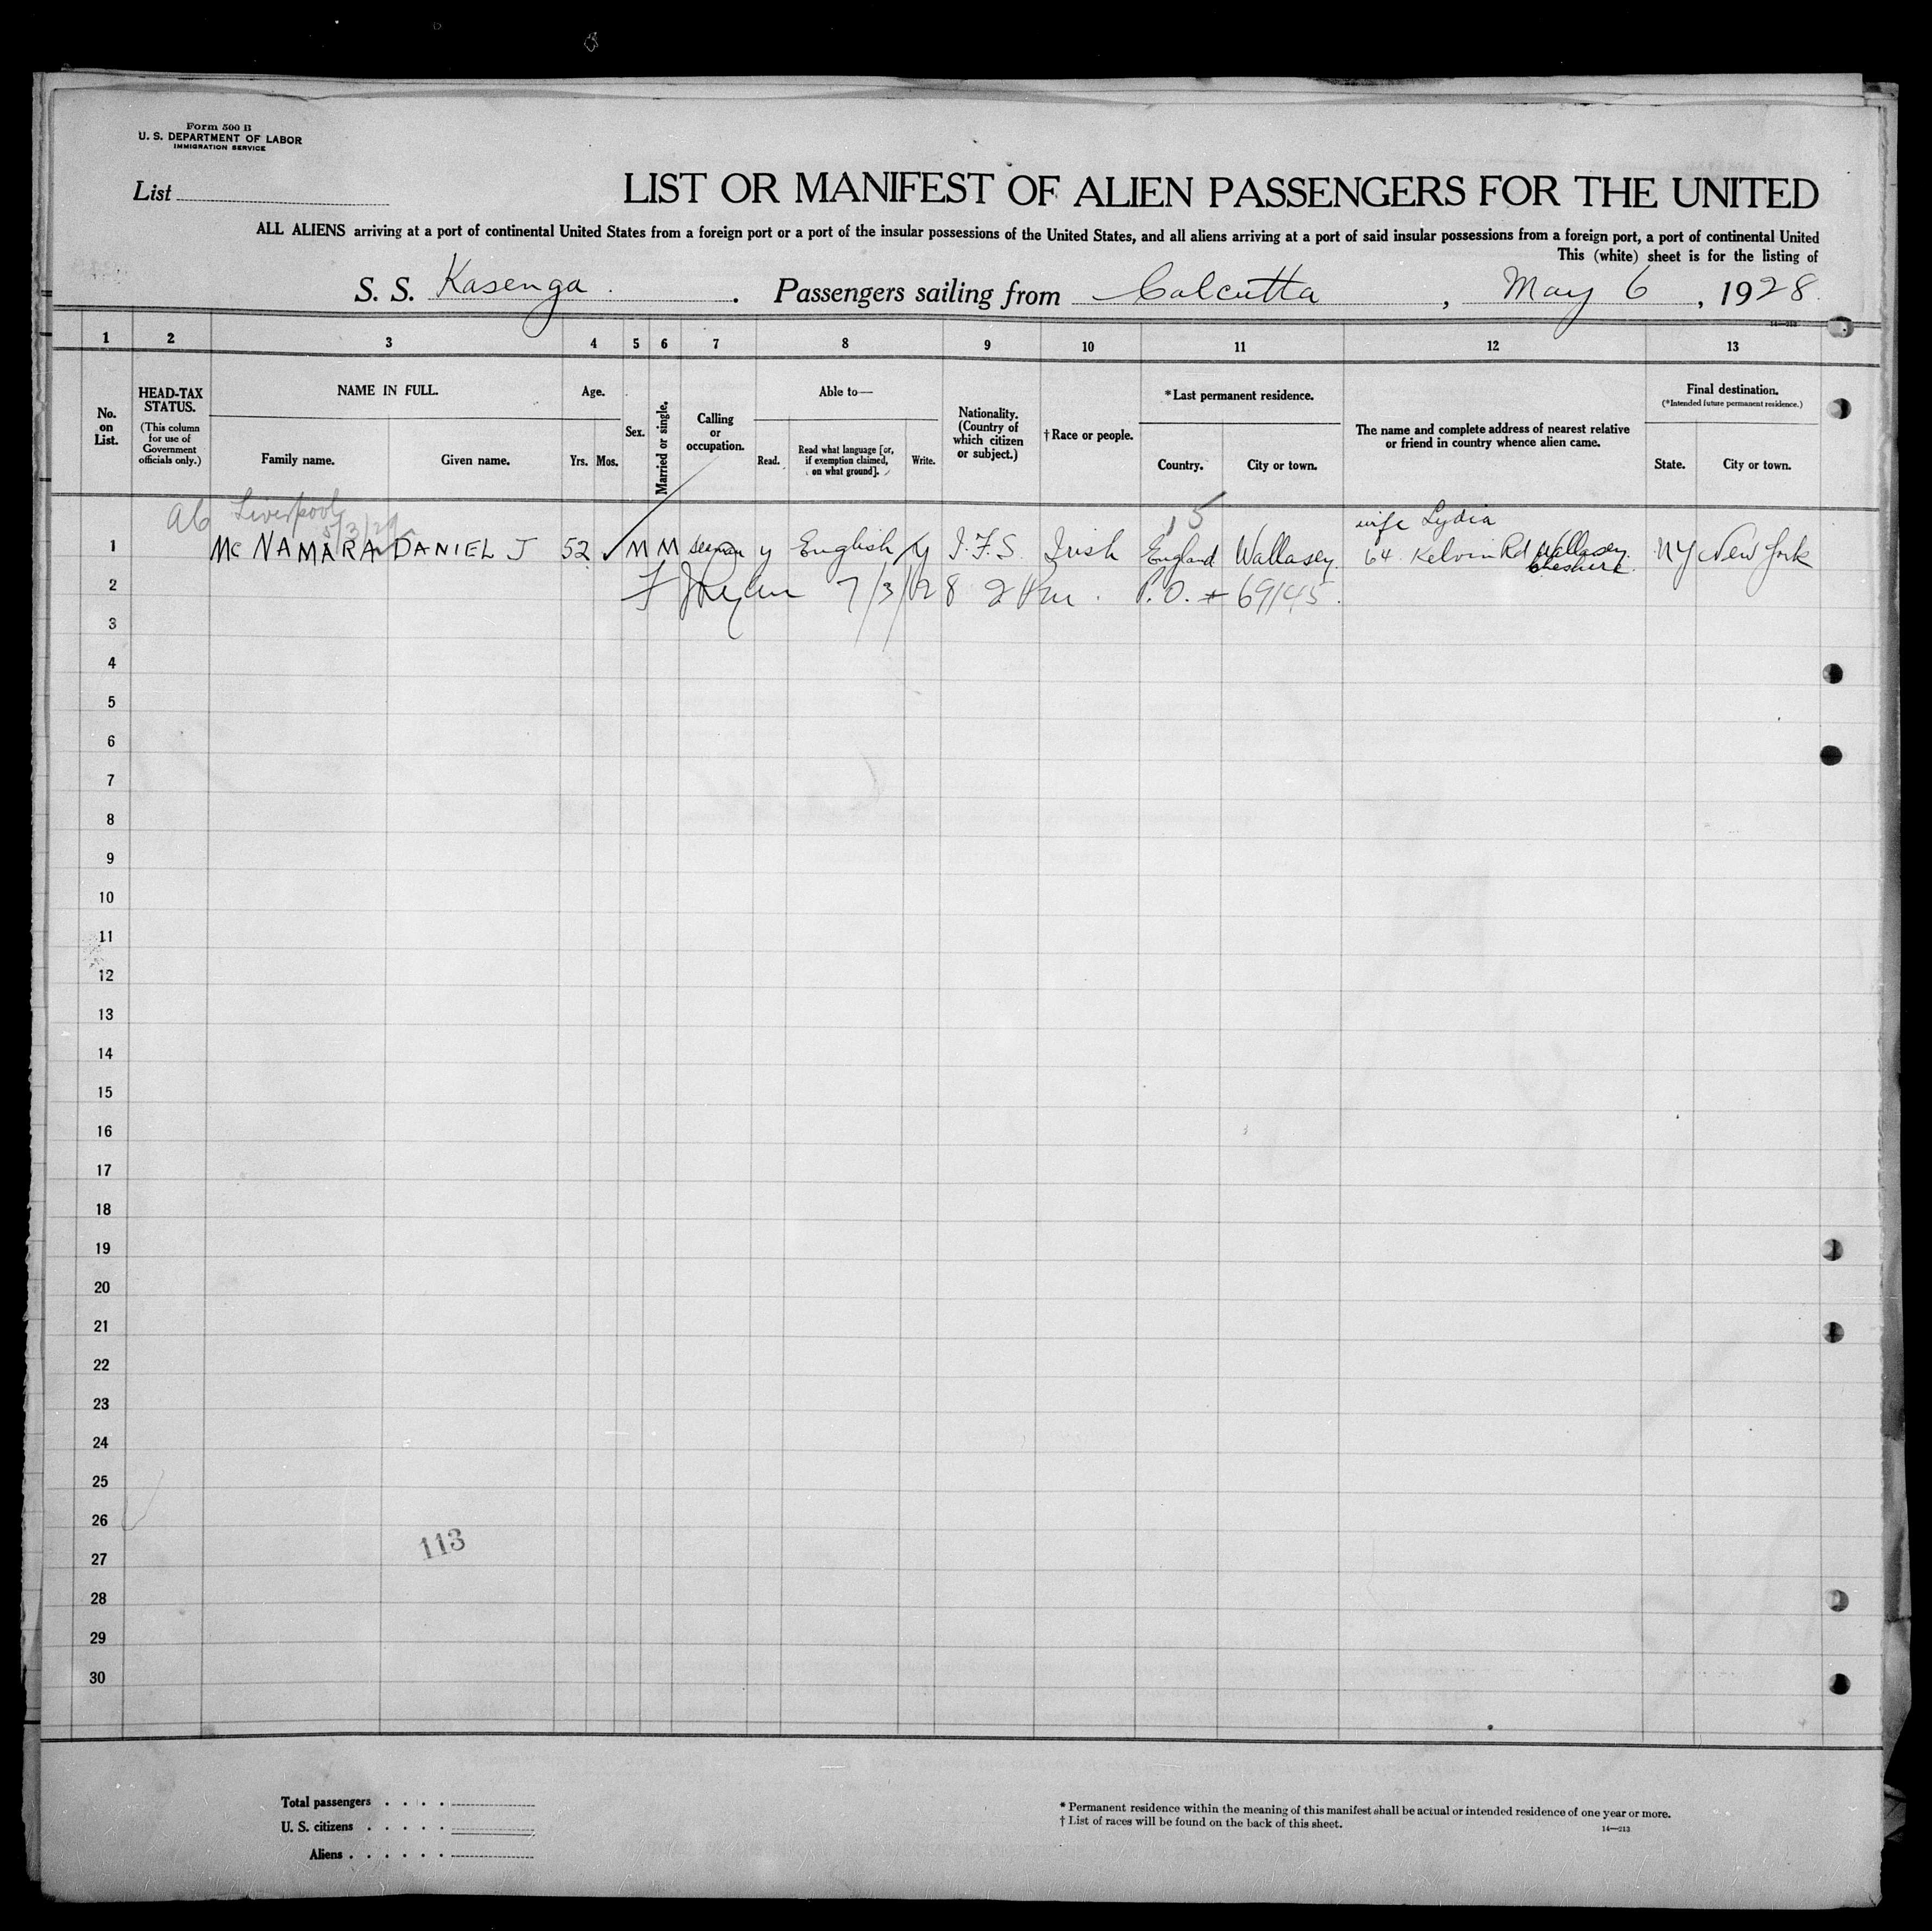 Form 500 B
U. S. DEPARTMENT OF LABOR
IMMIGRATION SERVICE
List
LIST OR MANIFEST OF ALIEN PASSENGERS FOR THE UNITED
ALL ALIENS arriving at a port of continental United States from a foreign port or a port of the insular possessions of the United States, and all aliens arriving at a port of said insular possessions from a foreign port, a port of continental United
This (white) sheet is for the listing of
S. S. Kasenga . Passengers sailing from Calcutta , May 6 , 1928
14—213
1 2 3 4 5 6 7 8 9 10 11 12 13
No. on List.
HEAD-TAX STATUS.
(This column for use of Government officials only.)
NAME IN FULL.
Family name. Given name.
Age.
Yrs. Mos.
Sex.
Married or single.
Calling or occupation.
Able to—
Read. Read what language [or, if exemption claimed, on what ground]. Write.
Nationality. (Country of which citizen or subject.)
† Race or people.
*Last permanent residence.
Country. City or town.
The name and complete address of nearest relative or friend in country whence alien came.
Final destination.
(*Intended future permanent residence.)
State. City or town.
Liverpool 5/3/29
15
wife Lydia
1 Mc NAMARA DANIEL J 52 M M Seaman y English y I.F.S. Irish England Wallasey 64 Kelvin Rd Wallasey Cheshire NY New York
2 7/3/28 P.O. 69145
3
4
5
6
7
8
9
10
11
12
13
14
15
16
17
18
19
20
21
22
23
24
25
26
27
28
29
30
113
Total passengers
U. S. citizens
Aliens
* Permanent residence within the meaning of this manifest shall be actual or intended residence of one year or more.
† List of races will be found on the back of this sheet.
14—213